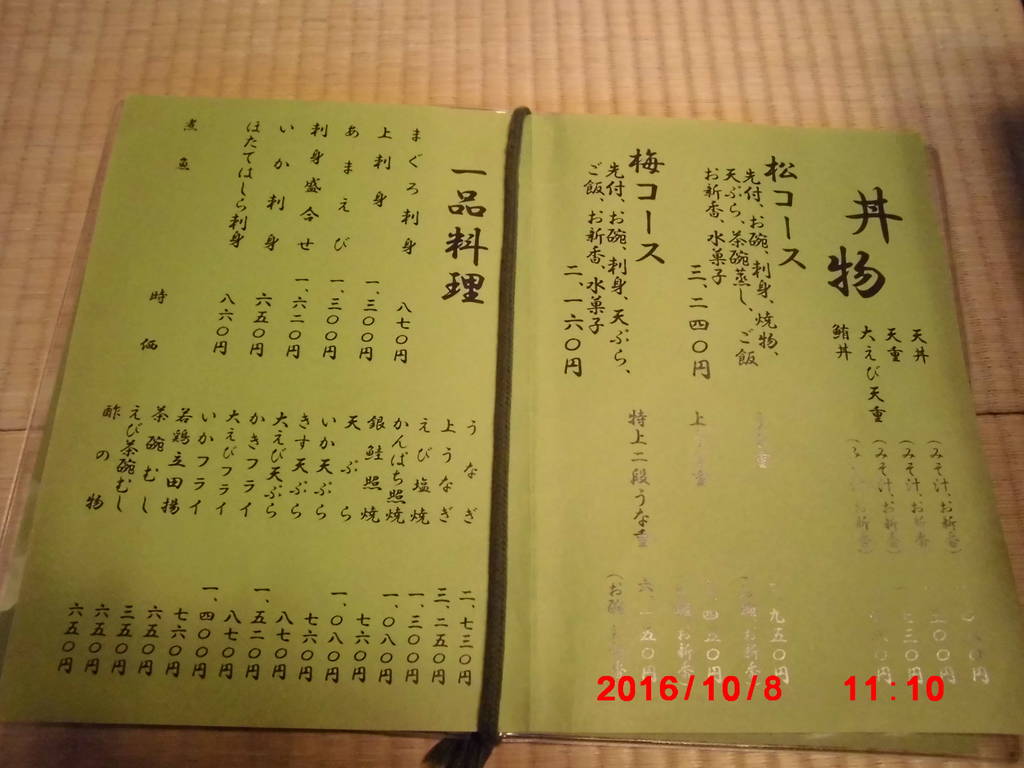 丼物
天丼
(みそ汁、お新香)
天重
(みそ汁、お新香)
大えび天重
(みそ汁、お新香)
鮪丼
松コース
先付、お碗、刺身、焼物、
天ぷら、茶碗蒸し、ご飯
お新香、水菓子
三、二四〇円
梅コース
先付、お碗、刺身、天ぷら、
ご飯、お新香、水菓子
二、一六〇円
上
特上二段うな重
一品料理
まぐろ刺身
八七〇円
上刺身
一、三〇〇円
あまえび
一、三〇〇円
刺身盛合せ
一、六二〇円
いか刺身
六五〇円
ほたてはしら刺身
八六〇円
煮魚
時価
うなぎ
二、七三〇円
上うなぎ
三、二五〇円
えび塩焼
一、三〇〇円
かんぱち照焼
一、〇八〇円
銀鮭照焼
七六〇円
天ぷら
一、〇八〇円
いか天ぷら
七六〇円
きす天ぷら
八七〇円
大えび天ぷら
一、五二〇円
かきフライ
八七〇円
大えびフライ
一、四〇〇円
いかフライ
七六〇円
若鶏立田揚
六五〇円
茶碗むし
三五〇円
えび茶碗むし
六五〇円
酢の物
六五〇円
2016/10/8 11:10